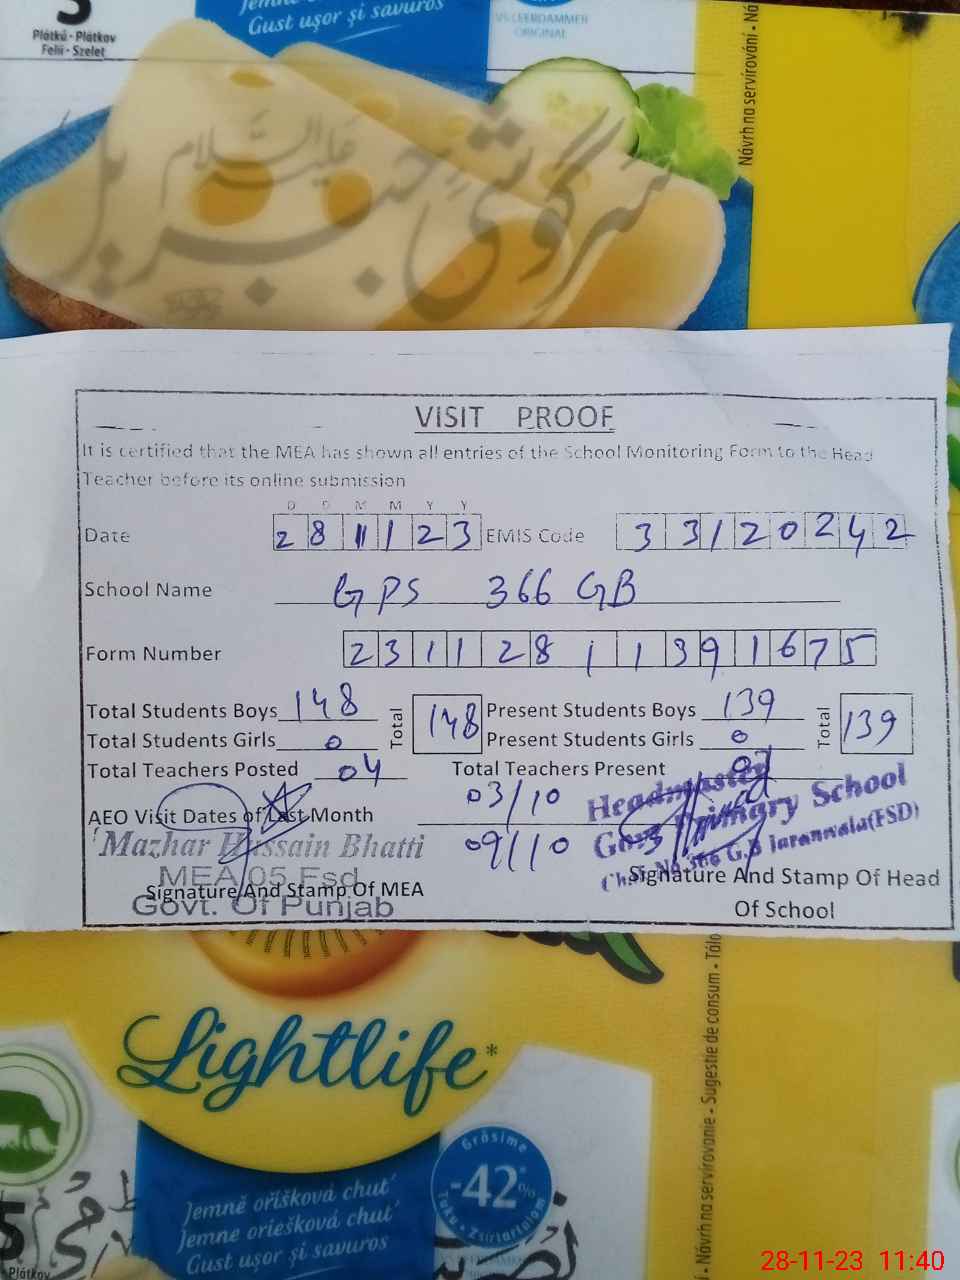 5
Plátků · Plátkov
Felii · Szelet
Gust ușor și savuros
VS LEERDAMMER
ORIGINAL
Návrh na servírování
سرگوشیِ جبریل
علیہ السلام
VISIT PROOF
It is certified that the MEA has shown all entries of the School Monitoring Form to the Head
Teacher before its online submission
D D M M Y Y
Date 2 8 1 1 2 3 EMIS Code 3 3 1 2 0 2 4 2
School Name GPS 366 GB
Form Number 2 3 1 1 2 8 1 1 3 9 1 6 7 5
Total Students Boys 148 Total 148 Present Students Boys 139 Total 139
Total Students Girls 0 Present Students Girls 0
Total Teachers Posted 04 Total Teachers Present
AEO Visit Dates of Last Month 03/10
09/10
Headmaster
Govt Primary School
G.B Jaranwala (FSD)
Mazhar Hussain Bhatti
MEA 05 Fsd
Govt. Of Punjab
Signature And Stamp Of MEA
Signature And Stamp Of Head
Of School
Lightlife*
Grăsime
-42%
Tuku · Zsírtartalom
Jemně oříšková chuť
Jemne orieškova chuť
Gust ușor și savuros
Návrh na servírovanie · Sugestie de consum
5
Plátkov
28-11-23 11:40